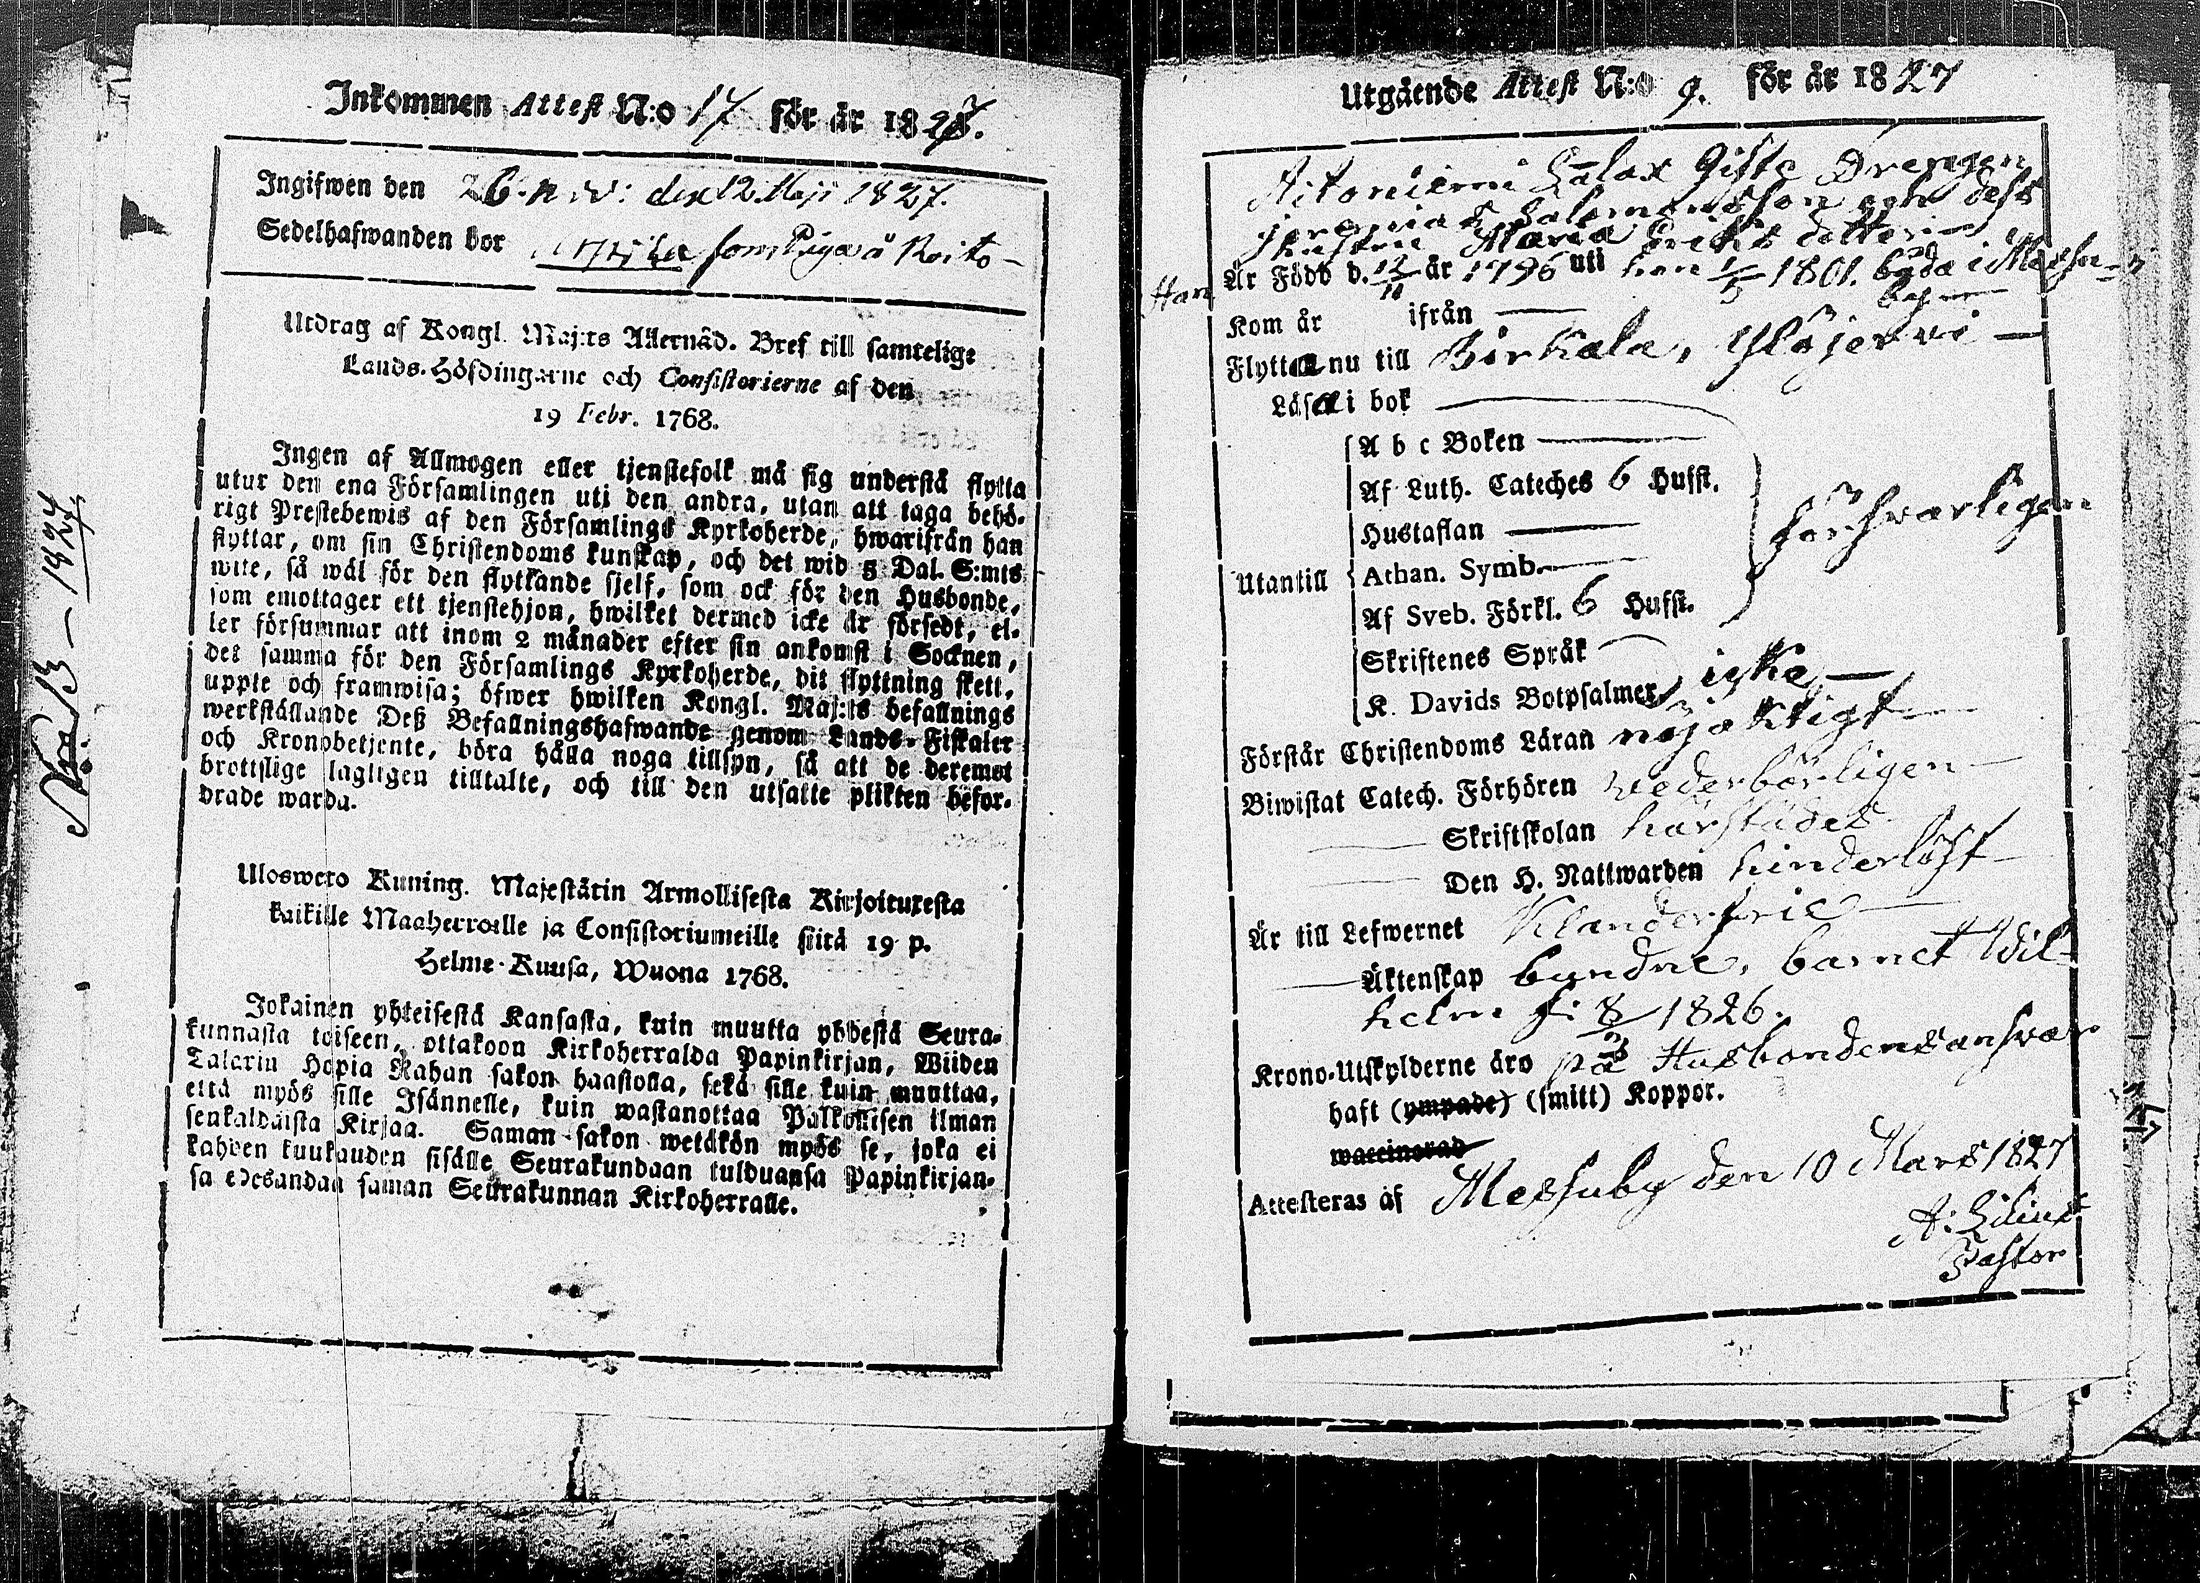 Inkommen Attest N:o 17 för år 1827.
Ingifwen den 26. n w: den 12. Maji 1827.
Sedelhafwanden bor som Piga å Roito
Utdrag af Kongl. Maj:ts Allernåd. Bref till samtelige
Lands-Höfdingarne och Consistorierne af den
19 Febr. 1768.
Ingen af Allmogen eller tjenstefolk må sig understå flytta
utur den ena Församlingen uti den andra, utan att taga behö-
rigt Prestebewis af den Församlings Kyrkoherde, hwarifrån han
flyttar, om sin Christendoms kunskap, och det wid 5 Dal. S:mts
wite, så wäl för den flyttande sjelf, som ock för den Husbonde,
som emottager ett tjenstehjon, hwilket dermed icke är försedt, el-
ler försummar att inom 2 månader efter sin ankomst i Socknen,
det samma för den Församlings Kyrkoherde, dit flyttning skett,
uppte och framwisa; öfwer hwilken Kongl. Maj:ts befallnings
werkställande Deß Befallningshafwande genom Lands-Fiskaler
och Kronobetjente, böra hålla noga tillsyn, så att de deremot
brottslige lagligen tilltalte, och till den utsatte plikten befor-
drade warda.
Ulosweto Kuning. Majestätin Armollisesta Kirjoituxesta
kaikille Maaherroille ja Consistoriumeille siitä 19 p.
Helme-Kuusa, Wuona 1768.
Jokainen yhteisestä Kansasta, kuin muutta yhdestä Seura-
kunnasta toiseen, ottakoon Kirkoherralda Papinkirjan, Wiiden
Talarin Hopia Rahan sakon haastolla, sekä sille kuin muuttaa,
että myös sille Isännelle, kuin wastanottaa Palkollisen ilman
senkaldaista Kirjaa. Saman sakon wetäkön myös se, joka ei
kahden kuukauden sisälle Seurakundaan tulduansa Papinkirjan-
sa edesandaa saman Seurakunnan Kirkoherralle.
N:o 13 – 1827
Utgående Attest N:o 9. för år 1827
Aitoniemi Salax Gifte Drengen
Jeremias Salomonsson och dess
Hustru Maria Eriks dotter
Han Är Född d. 12/11 år 1796 uti hon 1/5 1801. båda i Messu-
by
Kom år ifrån
Flytta nu till Birkala, Ylöjervi
Läsa i bok
A b c Boken
Af Luth. Cateches 6 Hufst.
Hustaflan
försvarligen
Utantill
Athan. Symb.
Af Sveb. Förkl. 6 Hufst.
Skriftenes Språk
K. Davids Botpsalmer icke
Förstår Christendoms Läran nöjaktigt
Biwistat Catech. Förhören wederbörligen
Skriftskolan härstädes
Den H. Nattwarden hinderlöst
Är till Lefwernet Klanderfrie
Äktenskap bundne, barnet Wil-
helm f: 8/3 1826.
Krono-Utskylderne äro på Husbondens answar
haft (ympade) (smitt) Koppor.
waccinerad
Attesteras af Messuby den 10 Mars 1827
Pastor